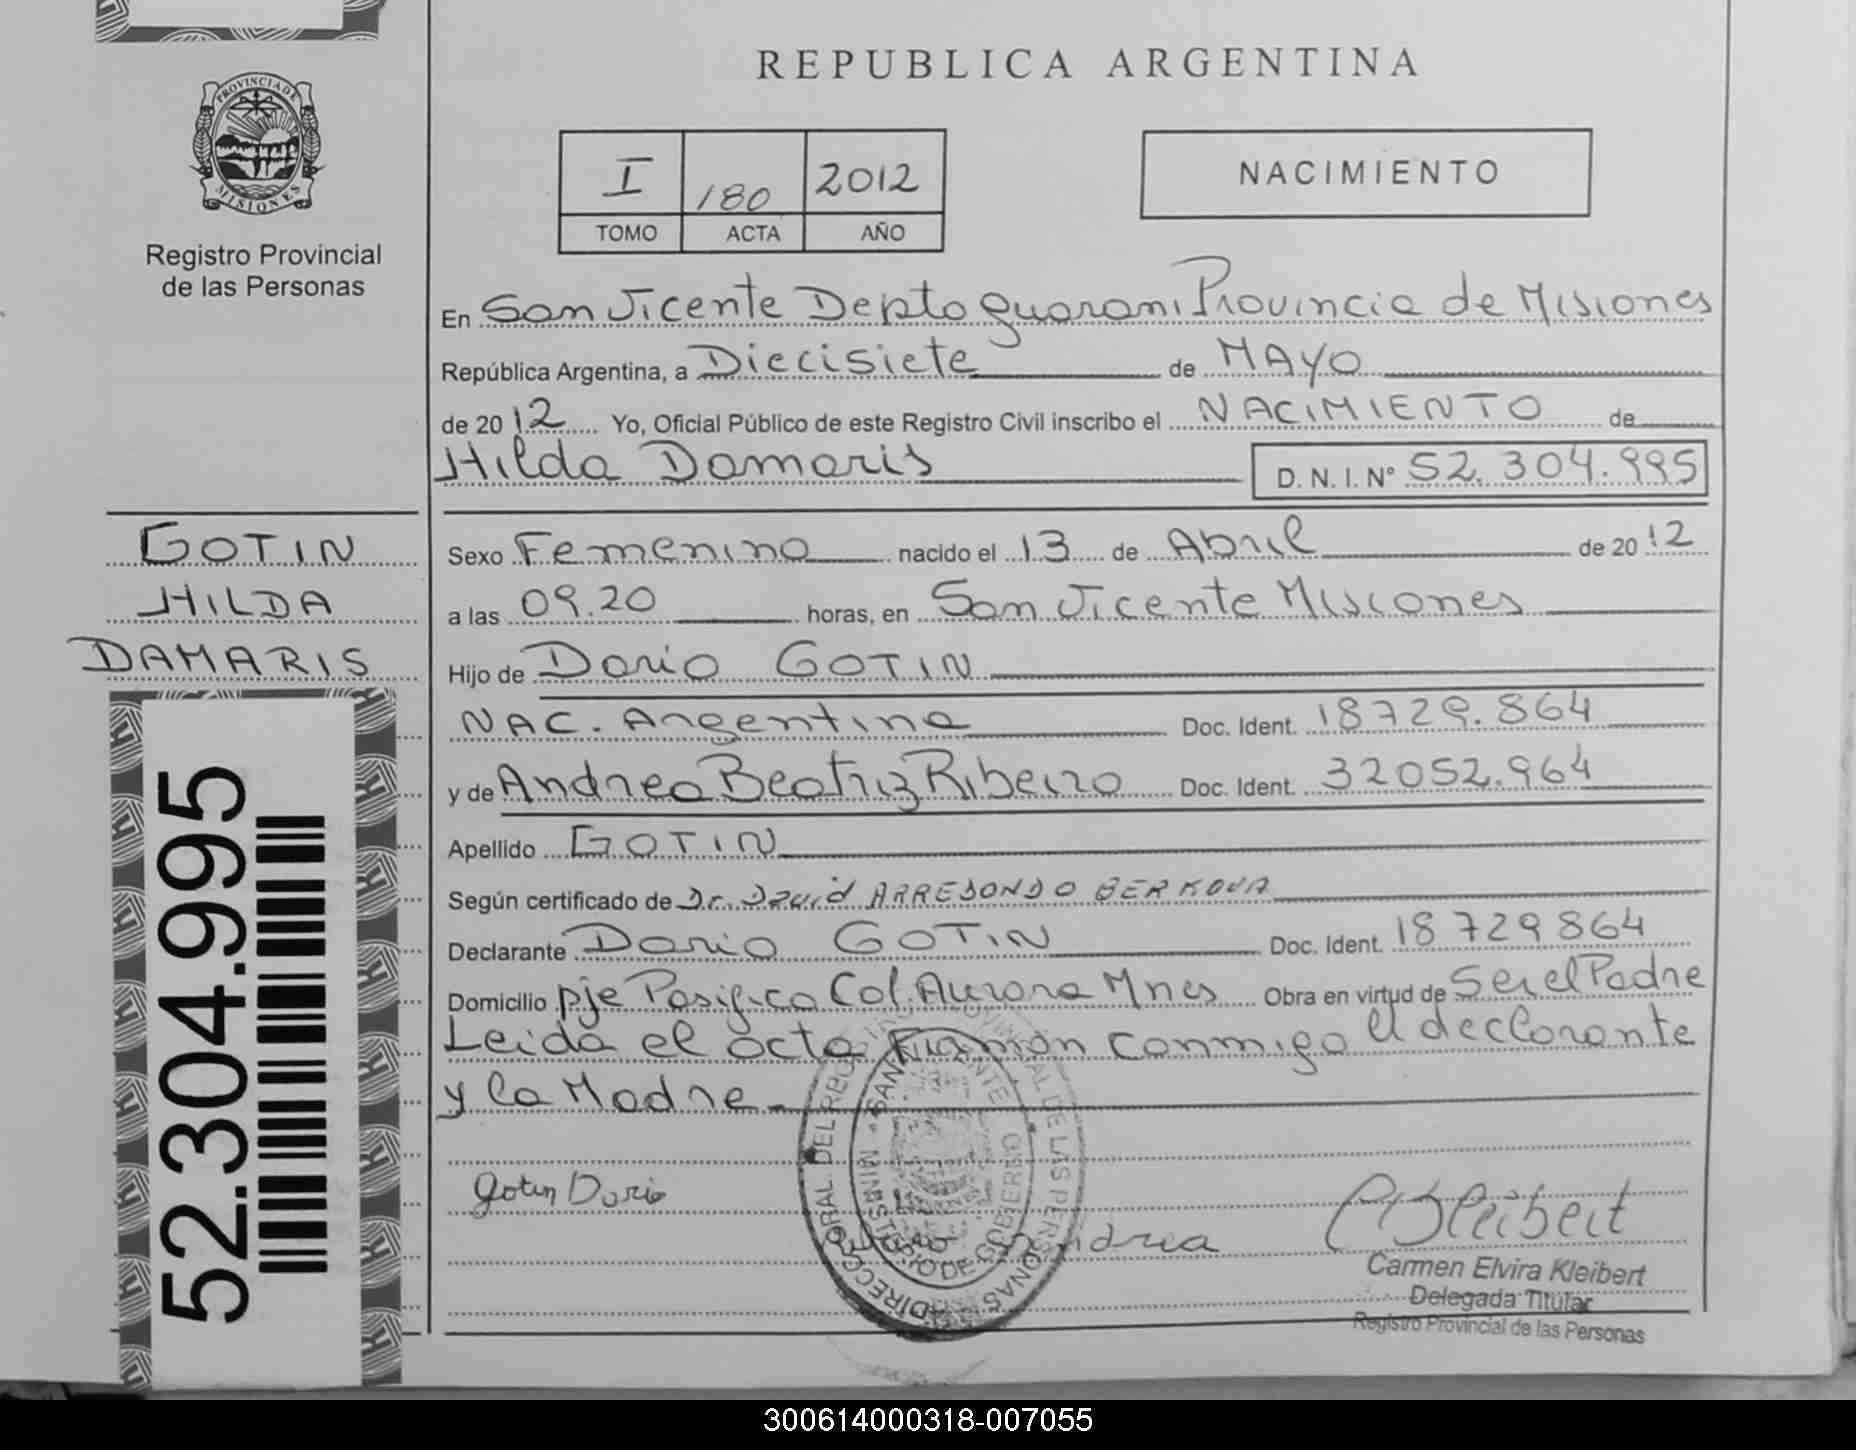 PROVINCIA DE
MISIONES
Registro Provincial
de las Personas
REPUBLICA ARGENTINA
I 180 2012
TOMO ACTA AÑO
NACIMIENTO
En San Vicente Depto Guarani Provincia de Misiones
República Argentina, a Diecisiete de MAYO
de 2012 Yo, Oficial Público de este Registro Civil inscribo el NACIMIENTO de
Hilda Damaris D. N. I. Nº 52.304.995
GOTIN
HILDA
DAMARIS
52.304.995
Sexo Femenino nacido el 13 de Abril de 2012
a las 09.20 horas, en San Vicente Misiones
Hijo de Dario GOTIN
NAC. Argentina Doc. Ident. 18729.864
y de Andrea Beatriz Ribeiro Doc. Ident. 32052.964
Apellido GOTIN
Según certificado de Dr. David ARREDONDO BERKOVA
Declarante Dario GOTIN Doc. Ident. 18729864
Domicilio pje Pasifico Col. Aurora Mnes Obra en virtud de Ser el Padre
Leida el acta Firman conmigo el declarante
y la Madre
Gotin Dario
Carmen Elvira Kleibert
Delegada Titular
Registro Provincial de las Personas
300614000318-007055